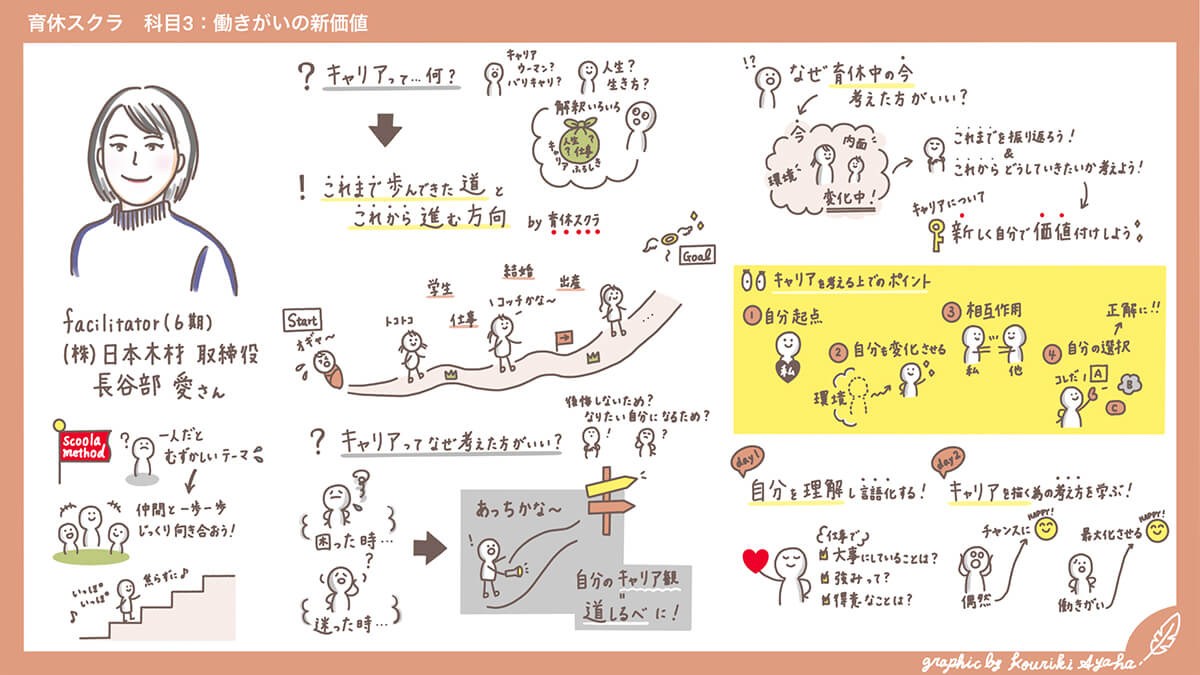 育休スクラ 科目3:働きがいの新価値
facilitator(6期)
(株)日本木材 取締役
長谷部 愛さん
Scoola
method
?
一人だと
むずかしいテーマ
仲間と一歩一歩
じっくり向き合おう!
焦らずに♪
いっぽ
いっぽ
♪
? キャリアって…何?
キャリア
ウーマン?
バリキャリ?
人生?
生き方?
解釈いろいろ
人生?
?仕事
キャリア
ふろしき
! これまで歩んできた道と
これから進む方向
by 育休スクラ
Start
オギャ〜
トコトコ
学生
仕事
結婚
コッチかな〜
出産
…
Goal
? キャリアってなぜ考えた方がいい?
後悔しないため?
なりたい自分になるため?
!
?
困った時…
?
迷った時…
あっちかな〜
!
自分のキャリア観
=
道しるべに!
!?
なぜ育休中の今
考えた方がいい?
今
内面
環境
変化中!
これまでを振り返ろう!
&
これからどうしていきたいか考えよう!
キャリアについて
新しく自分で価値付けしよう
キャリアを考える上でのポイント
①自分起点
私
② 自分も変化させる
環境
③ 相互作用
私 他
正解に!!
④ 自分の選択
コレだ!
A
B
C
day1
自分を理解し言語化する!
仕事で
大事にしていることは?
強みって?
得意なことは?
day2
キャリアを描く為の考え方を学ぶ!
HAPPY!
チャンスに
偶然
HAPPY!
最大化させる
働きがい
graphic by Kouriki Ayaha.